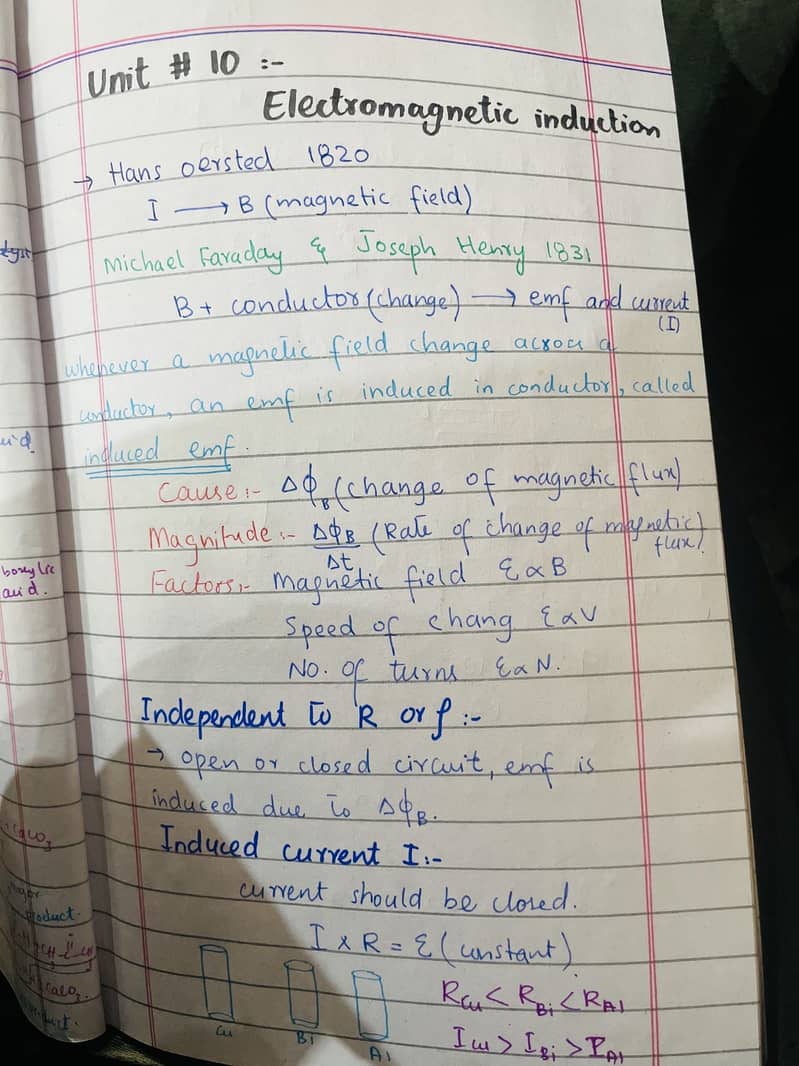 Unit # 10 :-
Electromagnetic induction
→ Hans oersted 1820
I → B (magnetic field)
Michael Faraday & Joseph Henry 1831
B + conductor (change) → emf and current
(I)
whenever a magnetic field change across a
conductor, an emf is induced in conductor, called
induced emf.
Cause :- ΔΦB (change of magnetic flux)
Magnitude :- ΔΦB/Δt (Rate of change of magnetic
flux)
Factors :- Magnetic field Ɛ ∝ B
Speed of chang Ɛ ∝ V
No. of turns Ɛ ∝ N.
Independent to R or ρ :-
→ open or closed circuit, emf is
induced due to ΔΦB.
Induced current I :-
current should be closed.
I × R = Ɛ (constant)
RCu < RBi < RAl
ICu > IBi > IAl
Cu Bi Al
boxylic
acid.
CaCO3
product.
CaCO3.